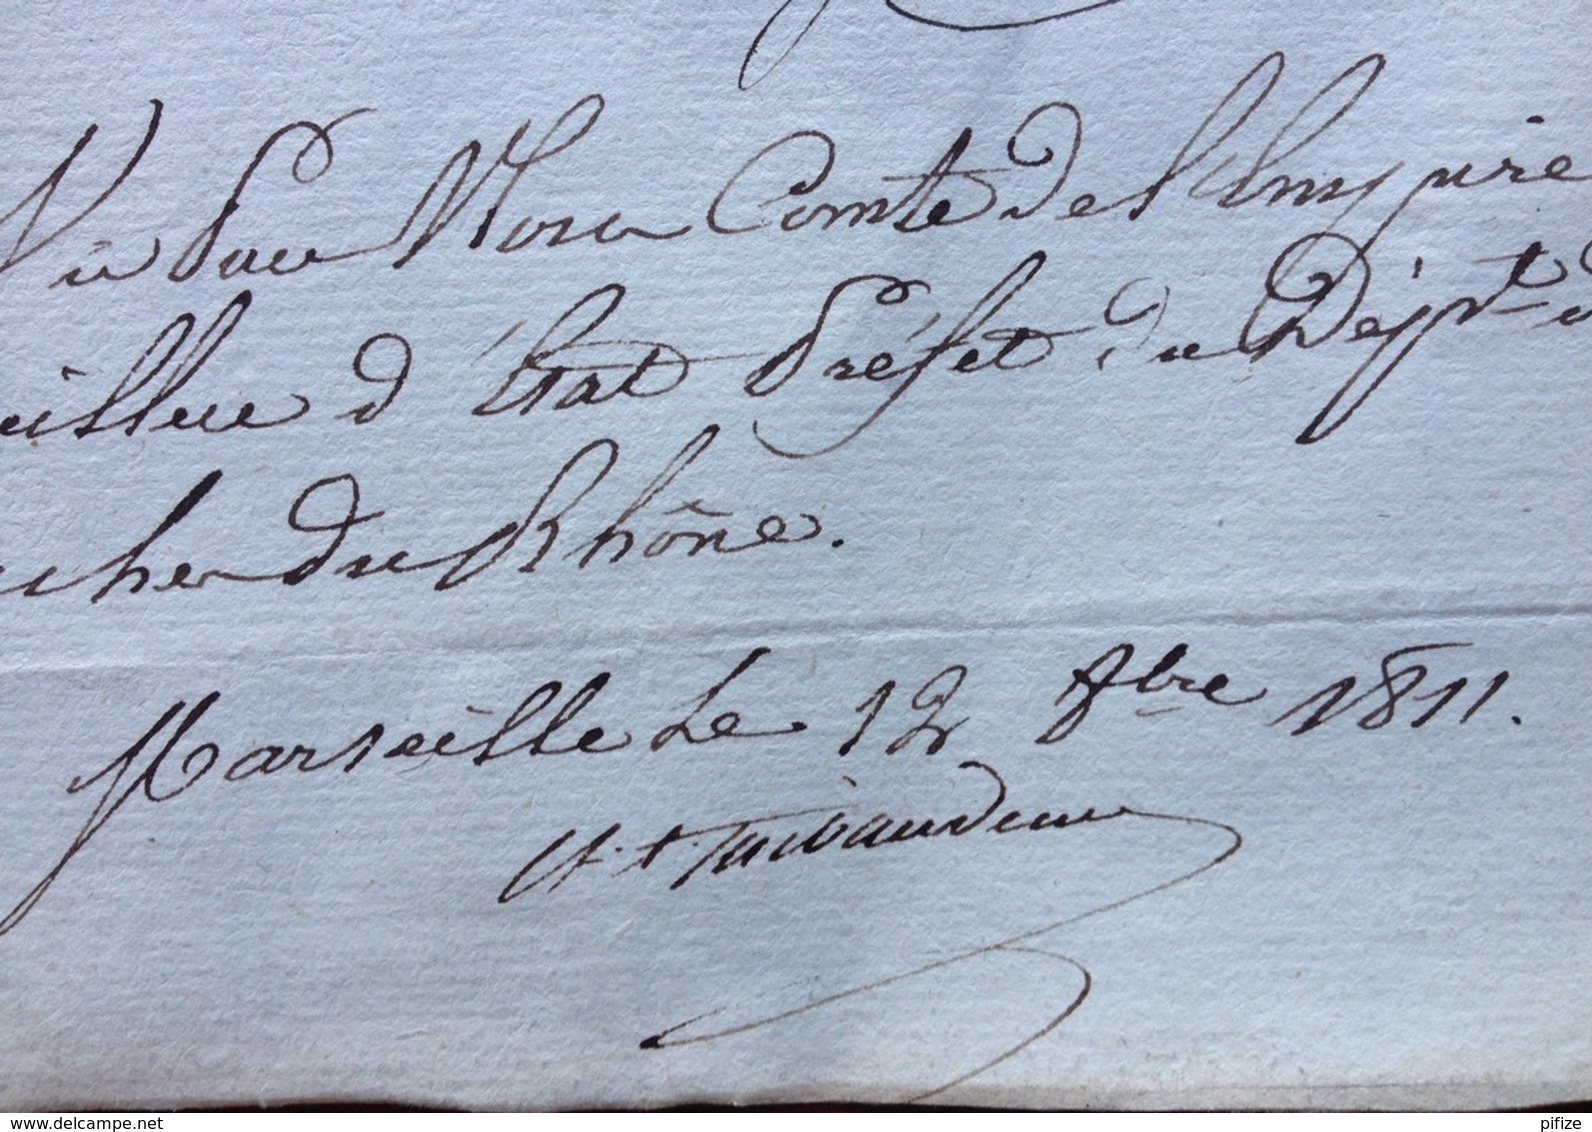 Vu Par Nous Comte de l'Empire
eiller d'Etat Préfet du Dépt. d
uches du Rhône.
Marseille Le 12 8bre 1811.
A. C. Thibaudeau
www.delcampe.net
pifize